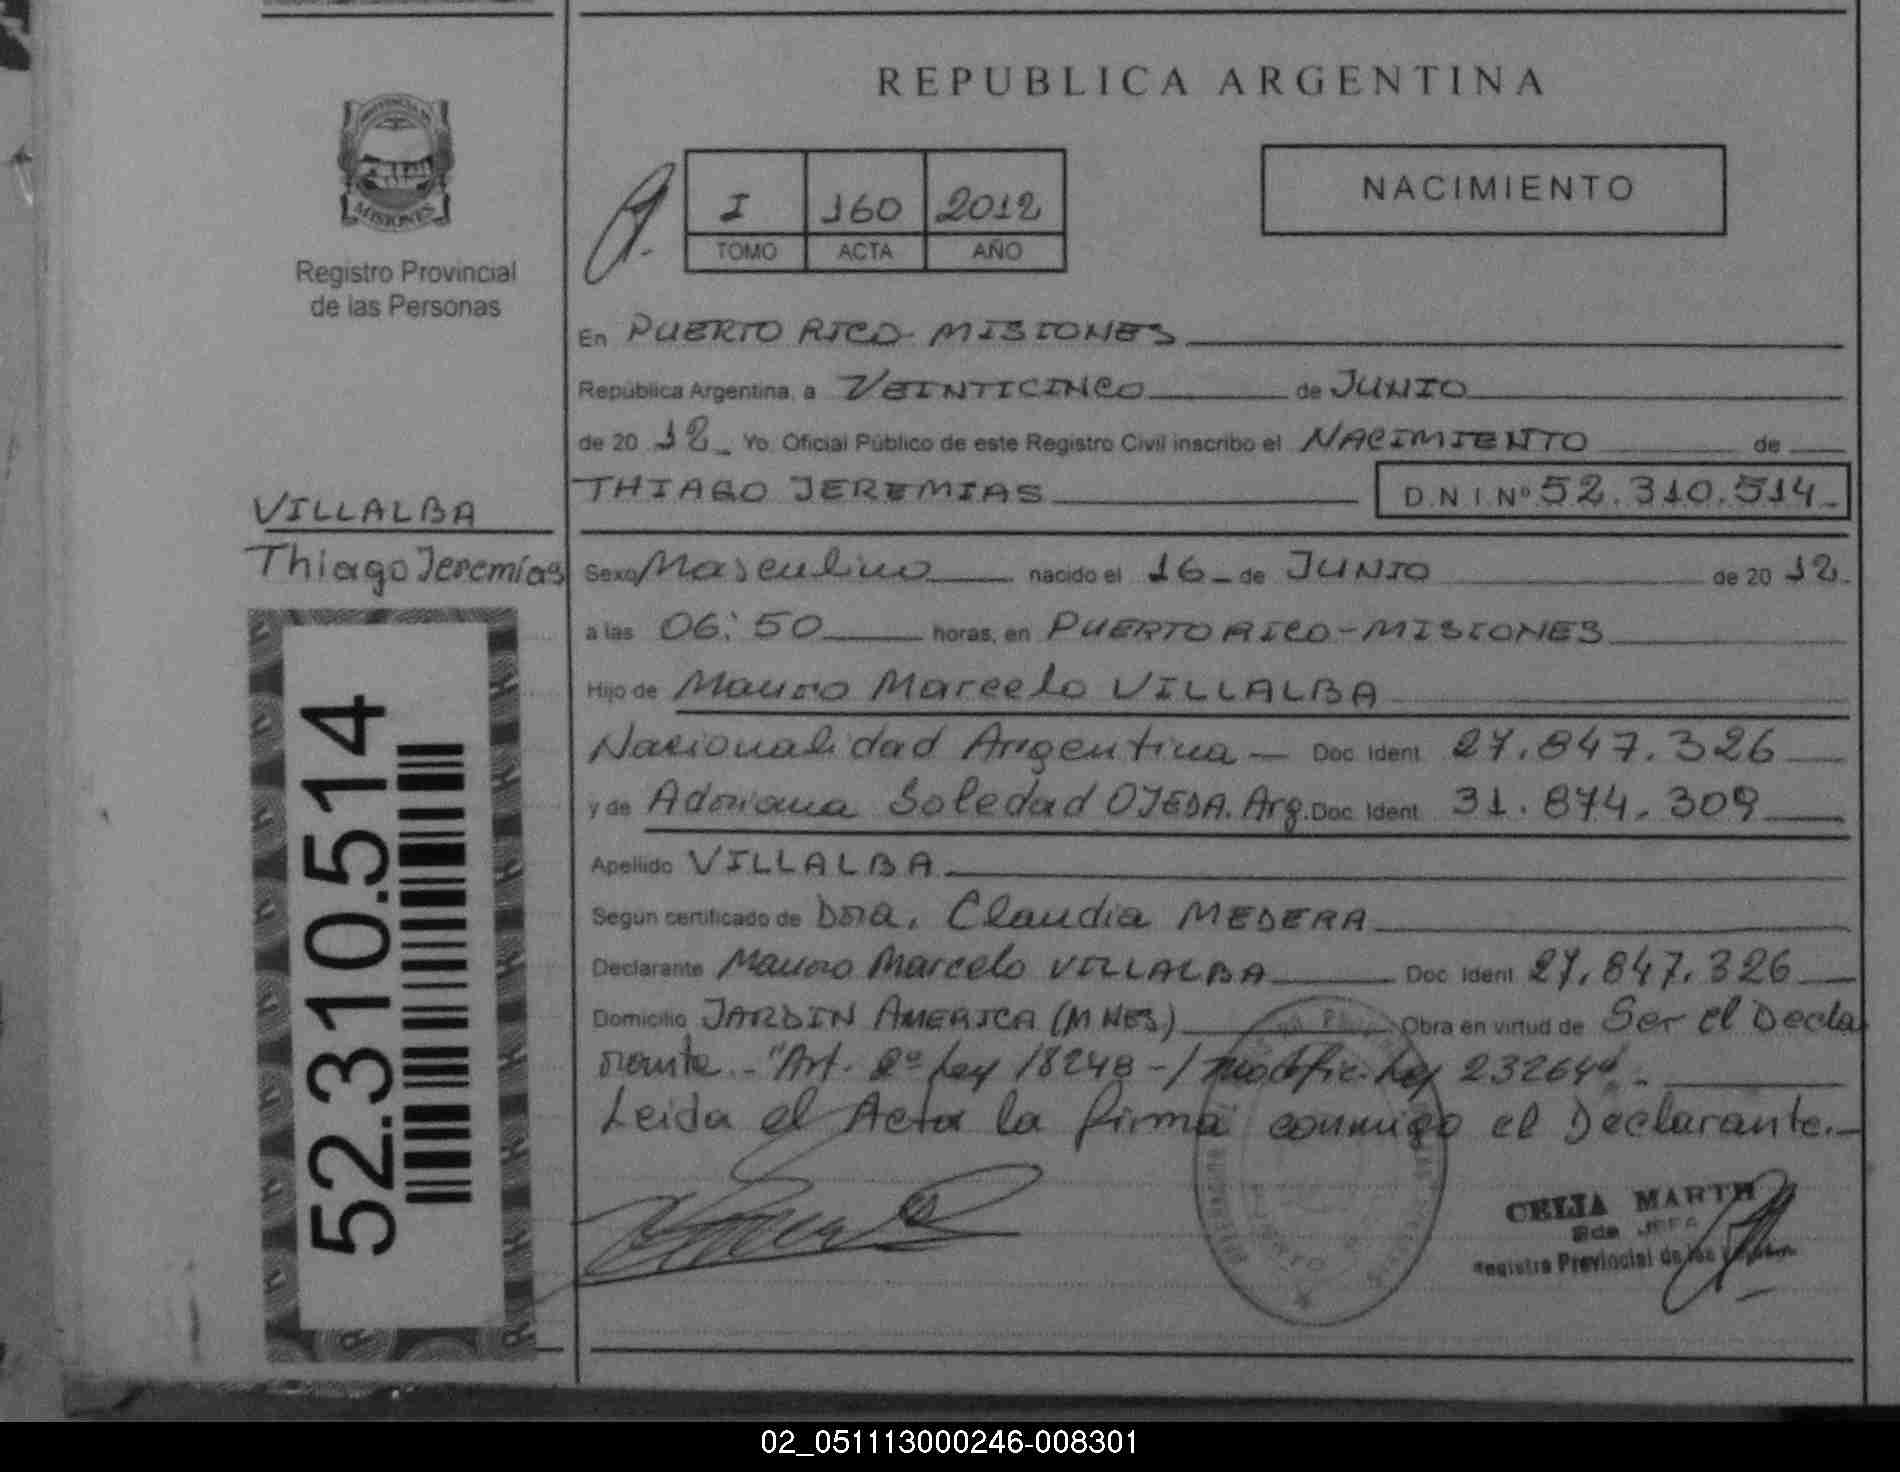 REPUBLICA ARGENTINA
PROVINCIA DE
MISIONES
Registro Provincial
de las Personas
I 160 2012
TOMO ACTA AÑO
NACIMIENTO
En PUERTO RICO - MISIONES
República Argentina, a VEINTICINCO de JUNIO
de 20 12 Yo Oficial Público de este Registro Civil inscribo el NACIMIENTO de
THIAGO JEREMIAS D.N.I.Nº 52.310.514
VILLALBA
Thiago Jeremías
52.310.514
Sexo Masculino nacido el 16 de JUNIO de 20 12
a las 06:50 horas, en PUERTO RICO - MISIONES
Hijo de Mauro Marcelo VILLALBA
Nacionalidad Argentina — Doc. Ident. 27.847.326
y de Adriana Soledad OJEDA. Arg. Doc. Ident. 31.874.309
Apellido VILLALBA
Segun certificado de Dra. Claudia MEDERA
Declarante Mauro Marcelo VILLALBA Doc. Ident. 27.847.326
Domicilio JARDIN AMERICA (MNES) Obra en virtud de Ser el Decla
rante. - "Art. 2º Ley 18248 - / modific. Ley 23264" -
Leida el Acta la firma conmigo el Declarante.-
CELIA MARTH
Registro Provincial de las
02_051113000246-008301